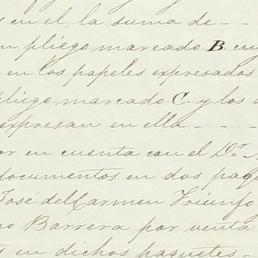 en el, la suma de - - -
pliego marcado B en
en los papeles expresados
pliego, marcado C. y los
expresan en ella - - -
or en cuenta con el Dr.
documentos en dos paq
José del Carmen Triunfo
no Barrera por venta
s en dichos paquetes -